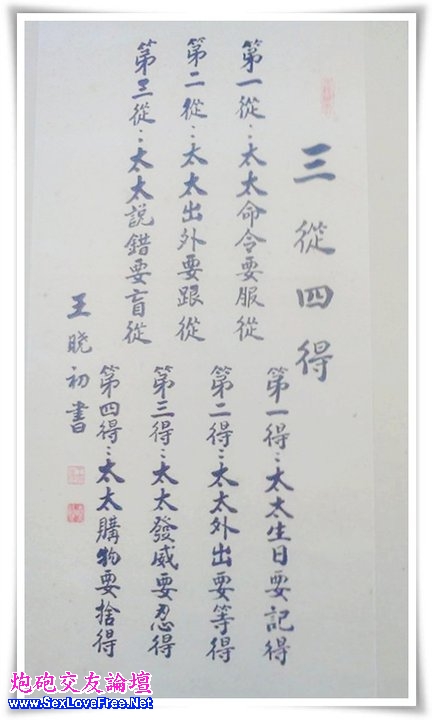 三從四得
第一從：太太命令要服從
第二從：太太出外要跟從
第三從：太太說錯要盲從
第一得：太太生日要記得
第二得：太太外出要等得
第三得：太太發威要忍得
第四得：太太購物要捨得
王曉初書
炮砲交友論壇
www.SexLoveFree.Net